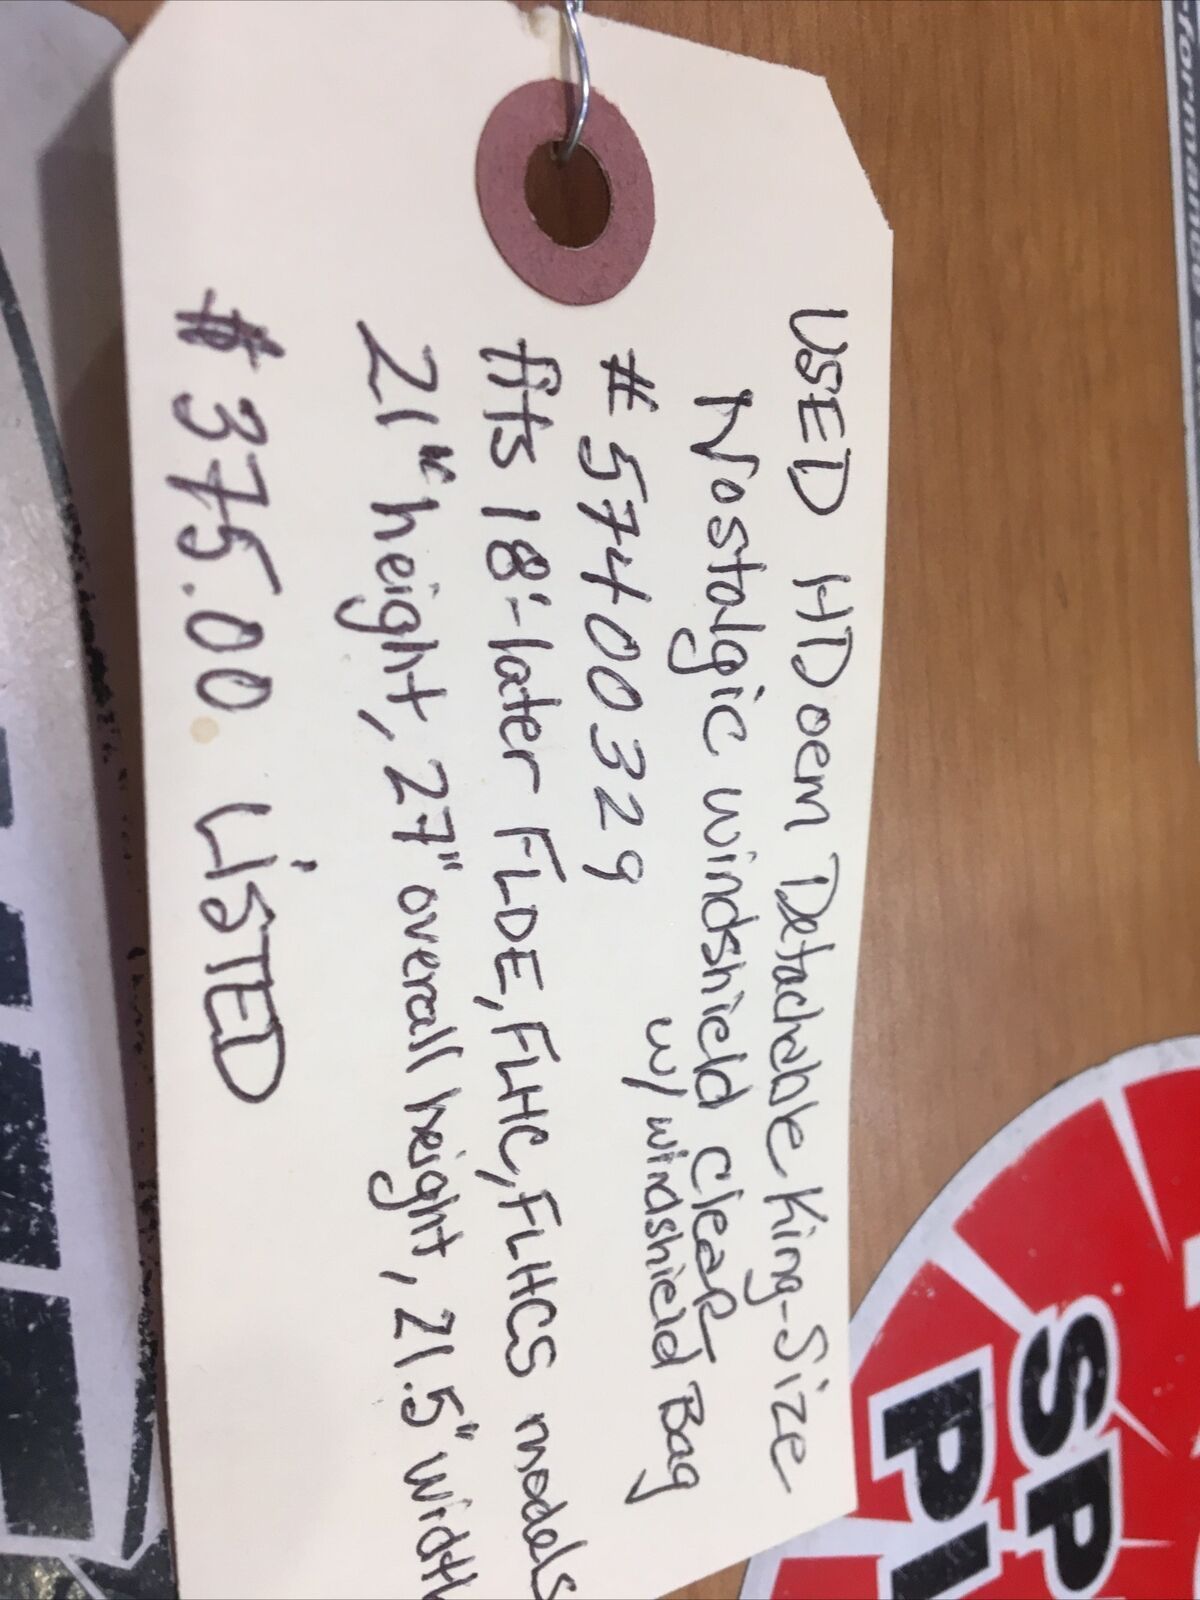 USED HD oem Detachable King-Size
Nostalgic windshield Clear
# 57400329 w/ windshield Bag
fits 18'-later FLDE, FLHC, FLHCS models
21" height, 27" overall height, 21.5" width
$375.00 LiSTED
SP
PI